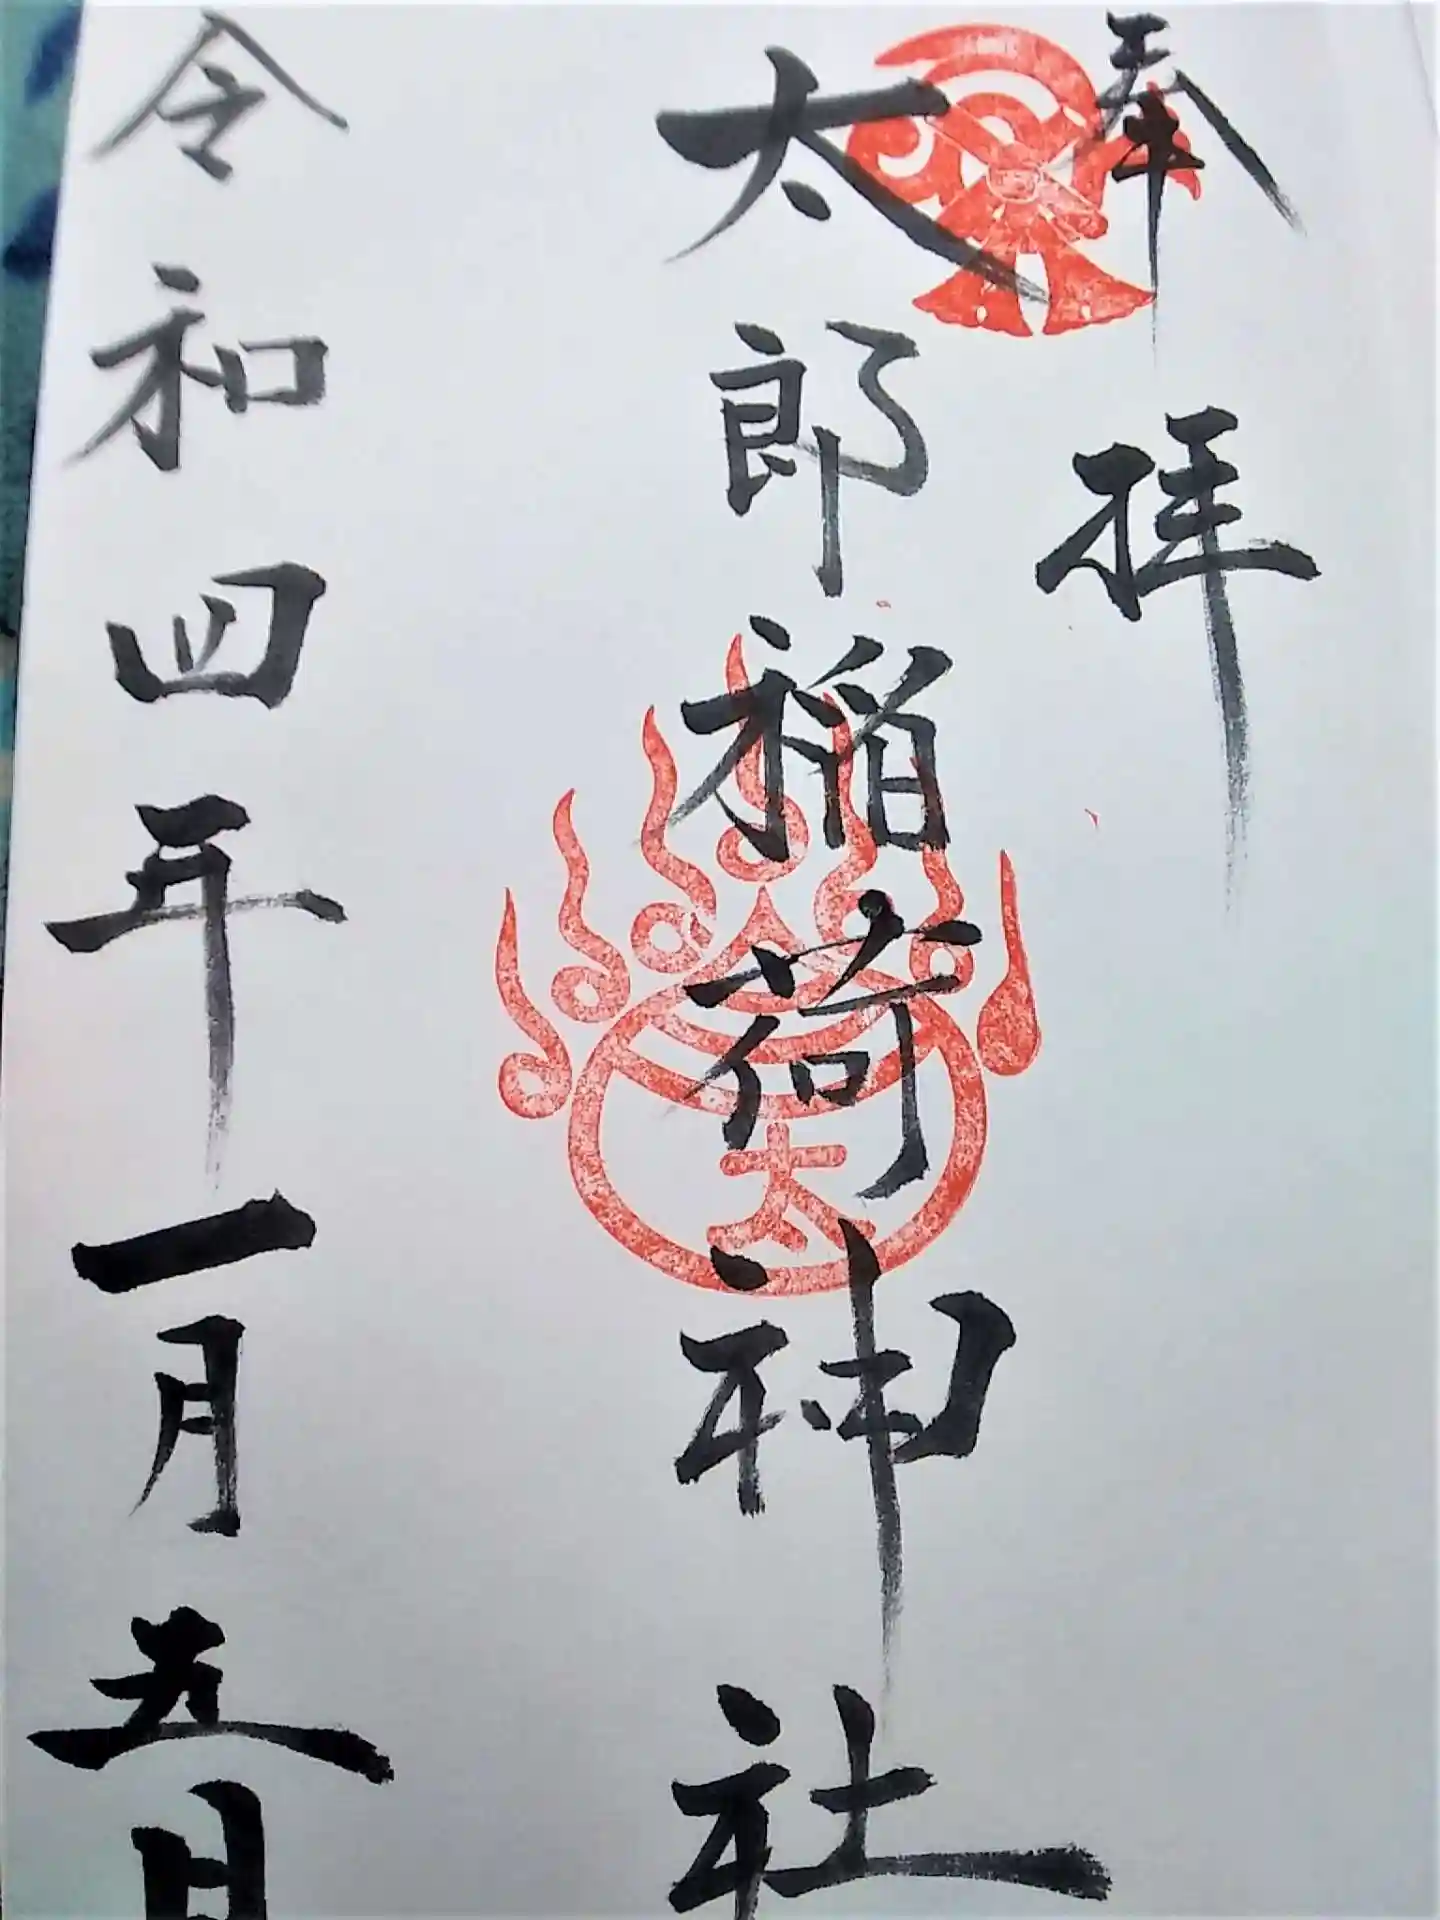 奉拝
太郎稲荷神社
太
令和四年一月五日